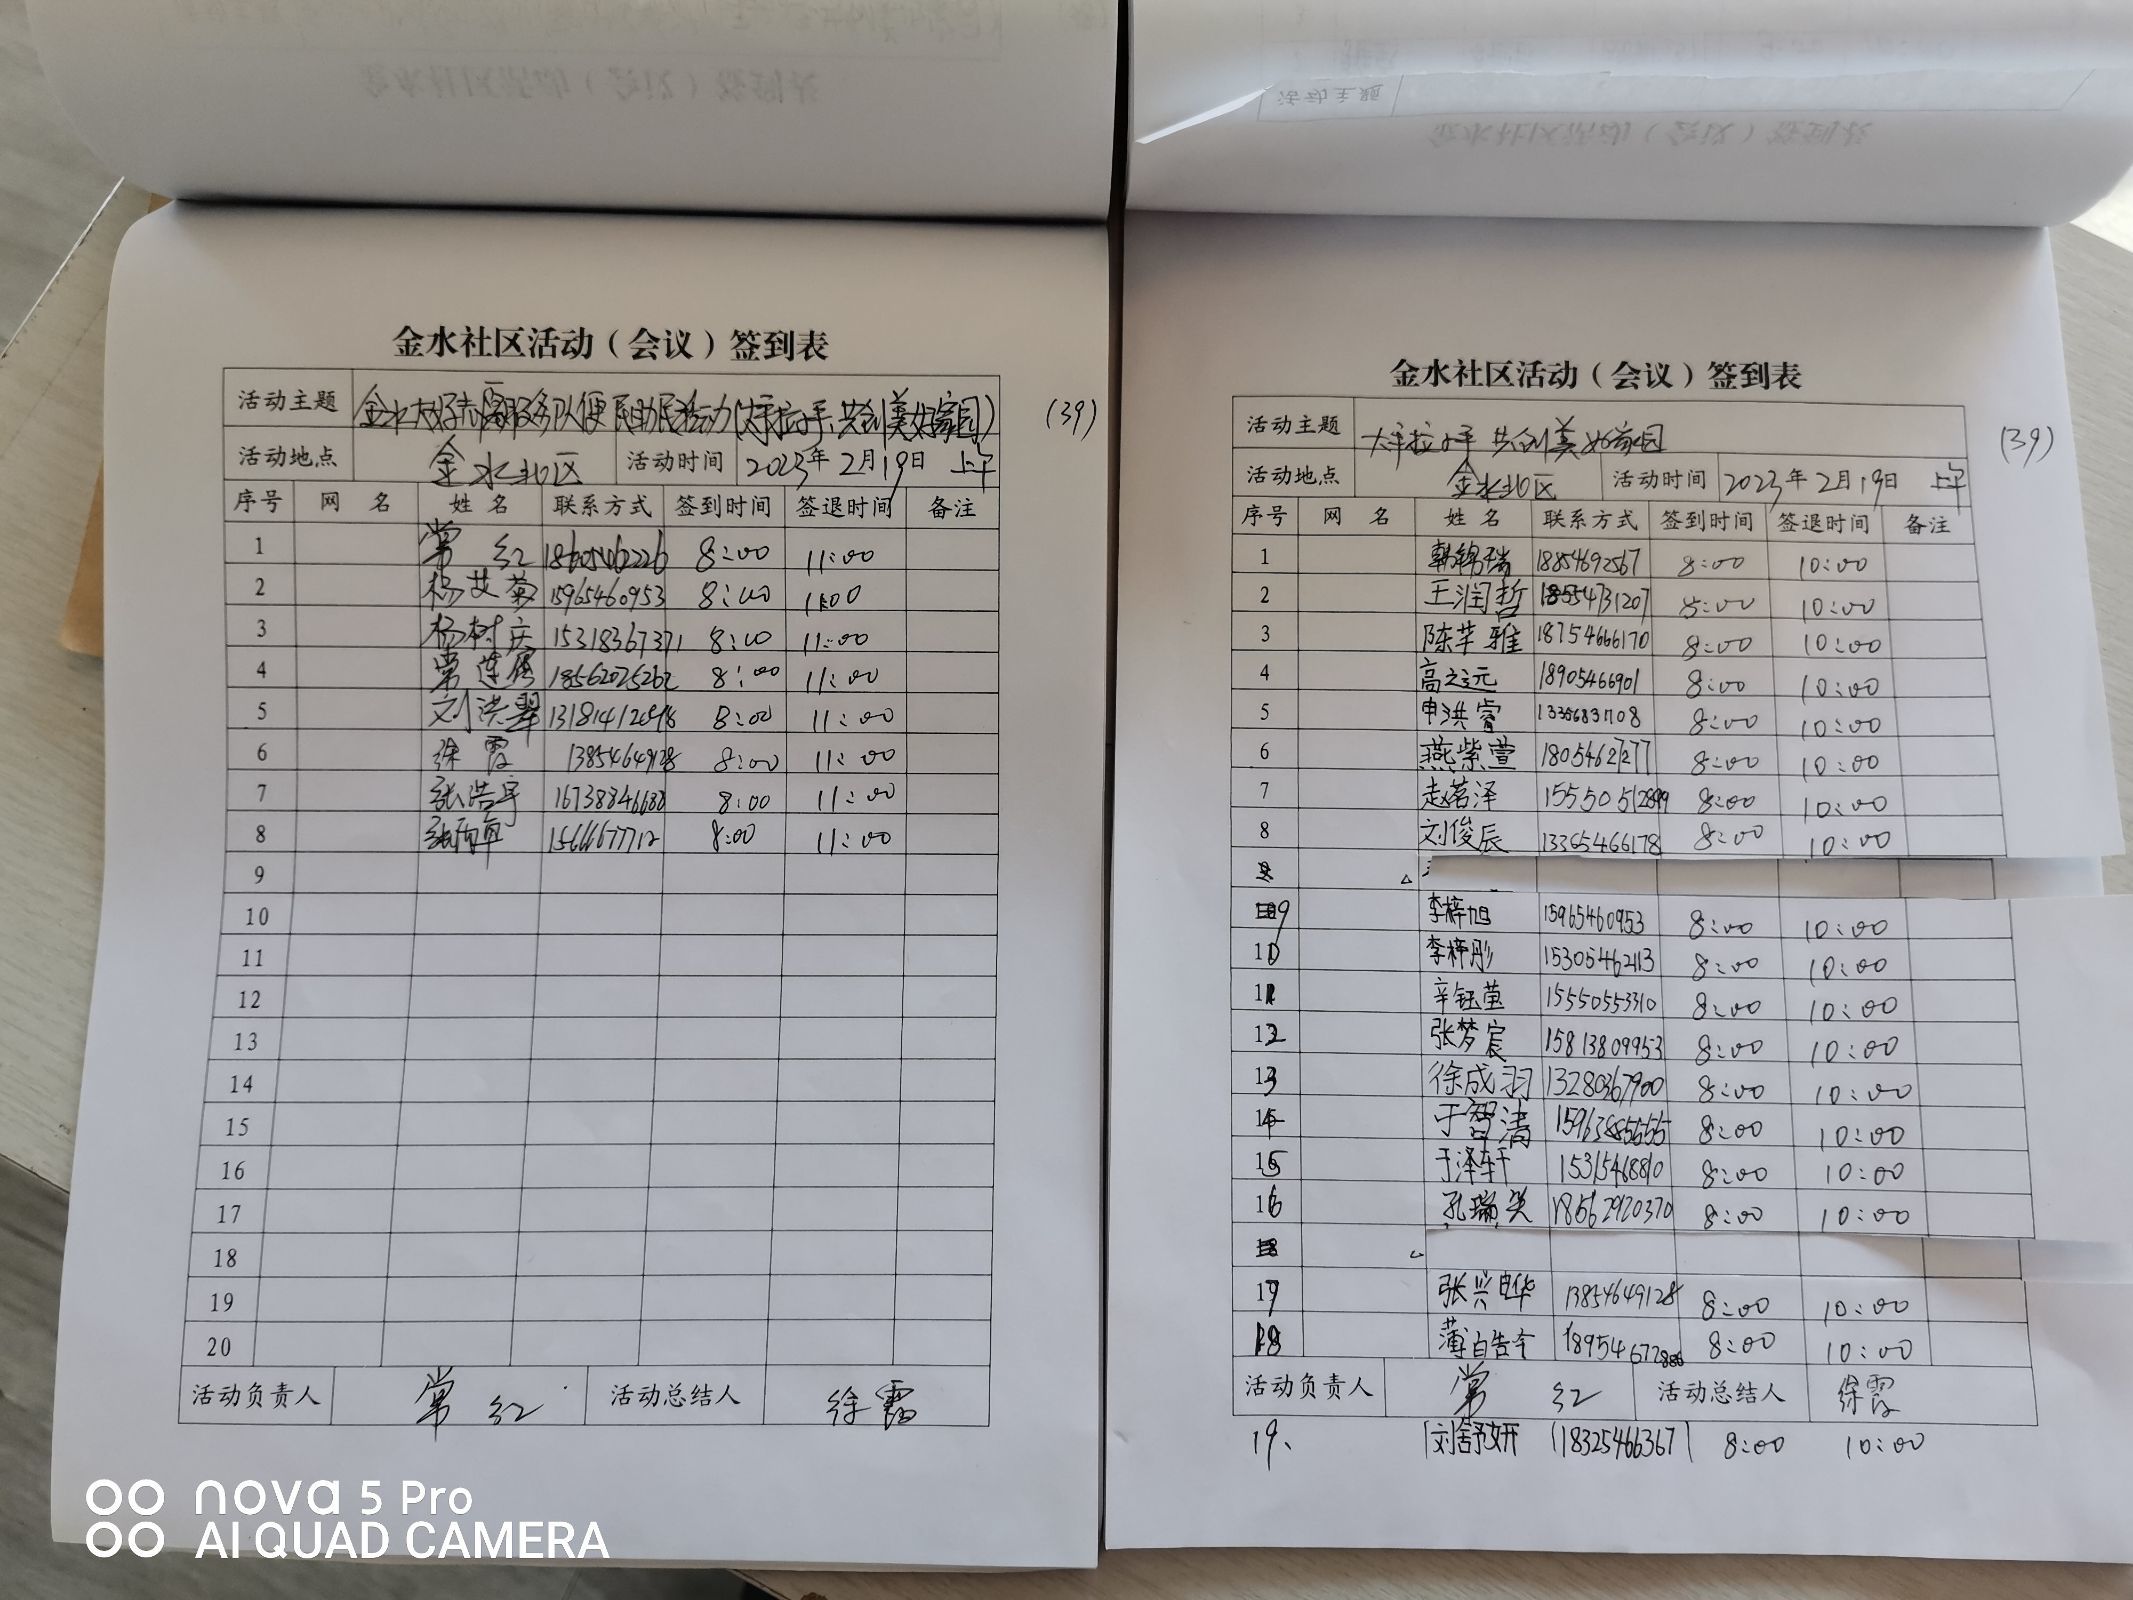 金水社区活动（会议）签到表
活动主题 金水大好志愿服务队便民助民活动(大手拉小手、共创美好家园) (39)
活动地点 金水北区 活动时间 2023年2月19日 上午
序号 网名 姓名 联系方式 签到时间 签退时间 备注
1 常红 8:00 11:00
2 杨艾菊 15965460953 8:00 11:00
3 杨树庆 15318367371 8:00 11:00
4 常莲 18562025262 8:00 11:00
5 刘洪翠 8:00 11:00
6 徐霞 13854649128 8:00 11:00
7 张浩宇 16738846688 8:00 11:00
8 15666677712 8:00 11:00
9
10
11
12
13
14
15
16
17
18
19
20
活动负责人 常红 活动总结人 徐霞
金水社区活动（会议）签到表
活动主题 大手拉小手 共创美好家园 (39)
活动地点 金水北区 活动时间 2023年2月19日 上午
序号 网名 姓名 联系方式 签到时间 签退时间 备注
1 韩锦瑞 18854692567 8:00 10:00
2 王润哲 18554731207 8:00 10:00
3 陈芊雅 18754666170 8:00 10:00
4 高之远 18905466901 8:00 10:00
5 申洪睿 8:00 10:00
6 燕紫萱 18054627277 8:00 10:00
7 赵茗泽 15550512899 8:00 10:00
8 刘俊辰 13365466178 8:00 10:00
9 李梓旭 15965460953 8:00 10:00
10 李梓彤 15305462113 8:00 10:00
11 辛钰莹 15550553310 8:00 10:00
12 张梦宸 15813809953 8:00 10:00
13 徐成羽 13280367900 8:00 10:00
14 于智清 8:00 10:00
15 于泽轩 15315468810 8:00 10:00
16 孔瑞 18562920370 8:00 10:00
17 张兴 13854649128 8:00 10:00
18 薄 8:00 10:00
活动负责人 常红 活动总结人 徐霞
19、 刘舒妍 18325466367 8:00 10:00
nova 5 Pro
AI QUAD CAMERA